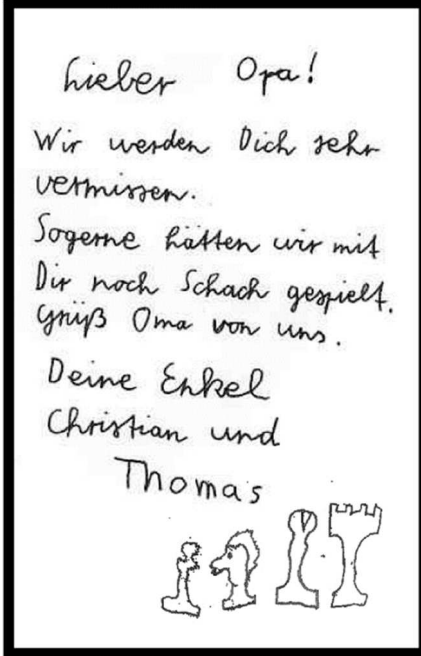 Lieber Opa!
Wir werden Dich sehr
vermissen.
Sogerne hätten wir mit
Dir noch Schach gespielt.
Grüß Oma von uns.
Deine Enkel
Christian und
Thomas